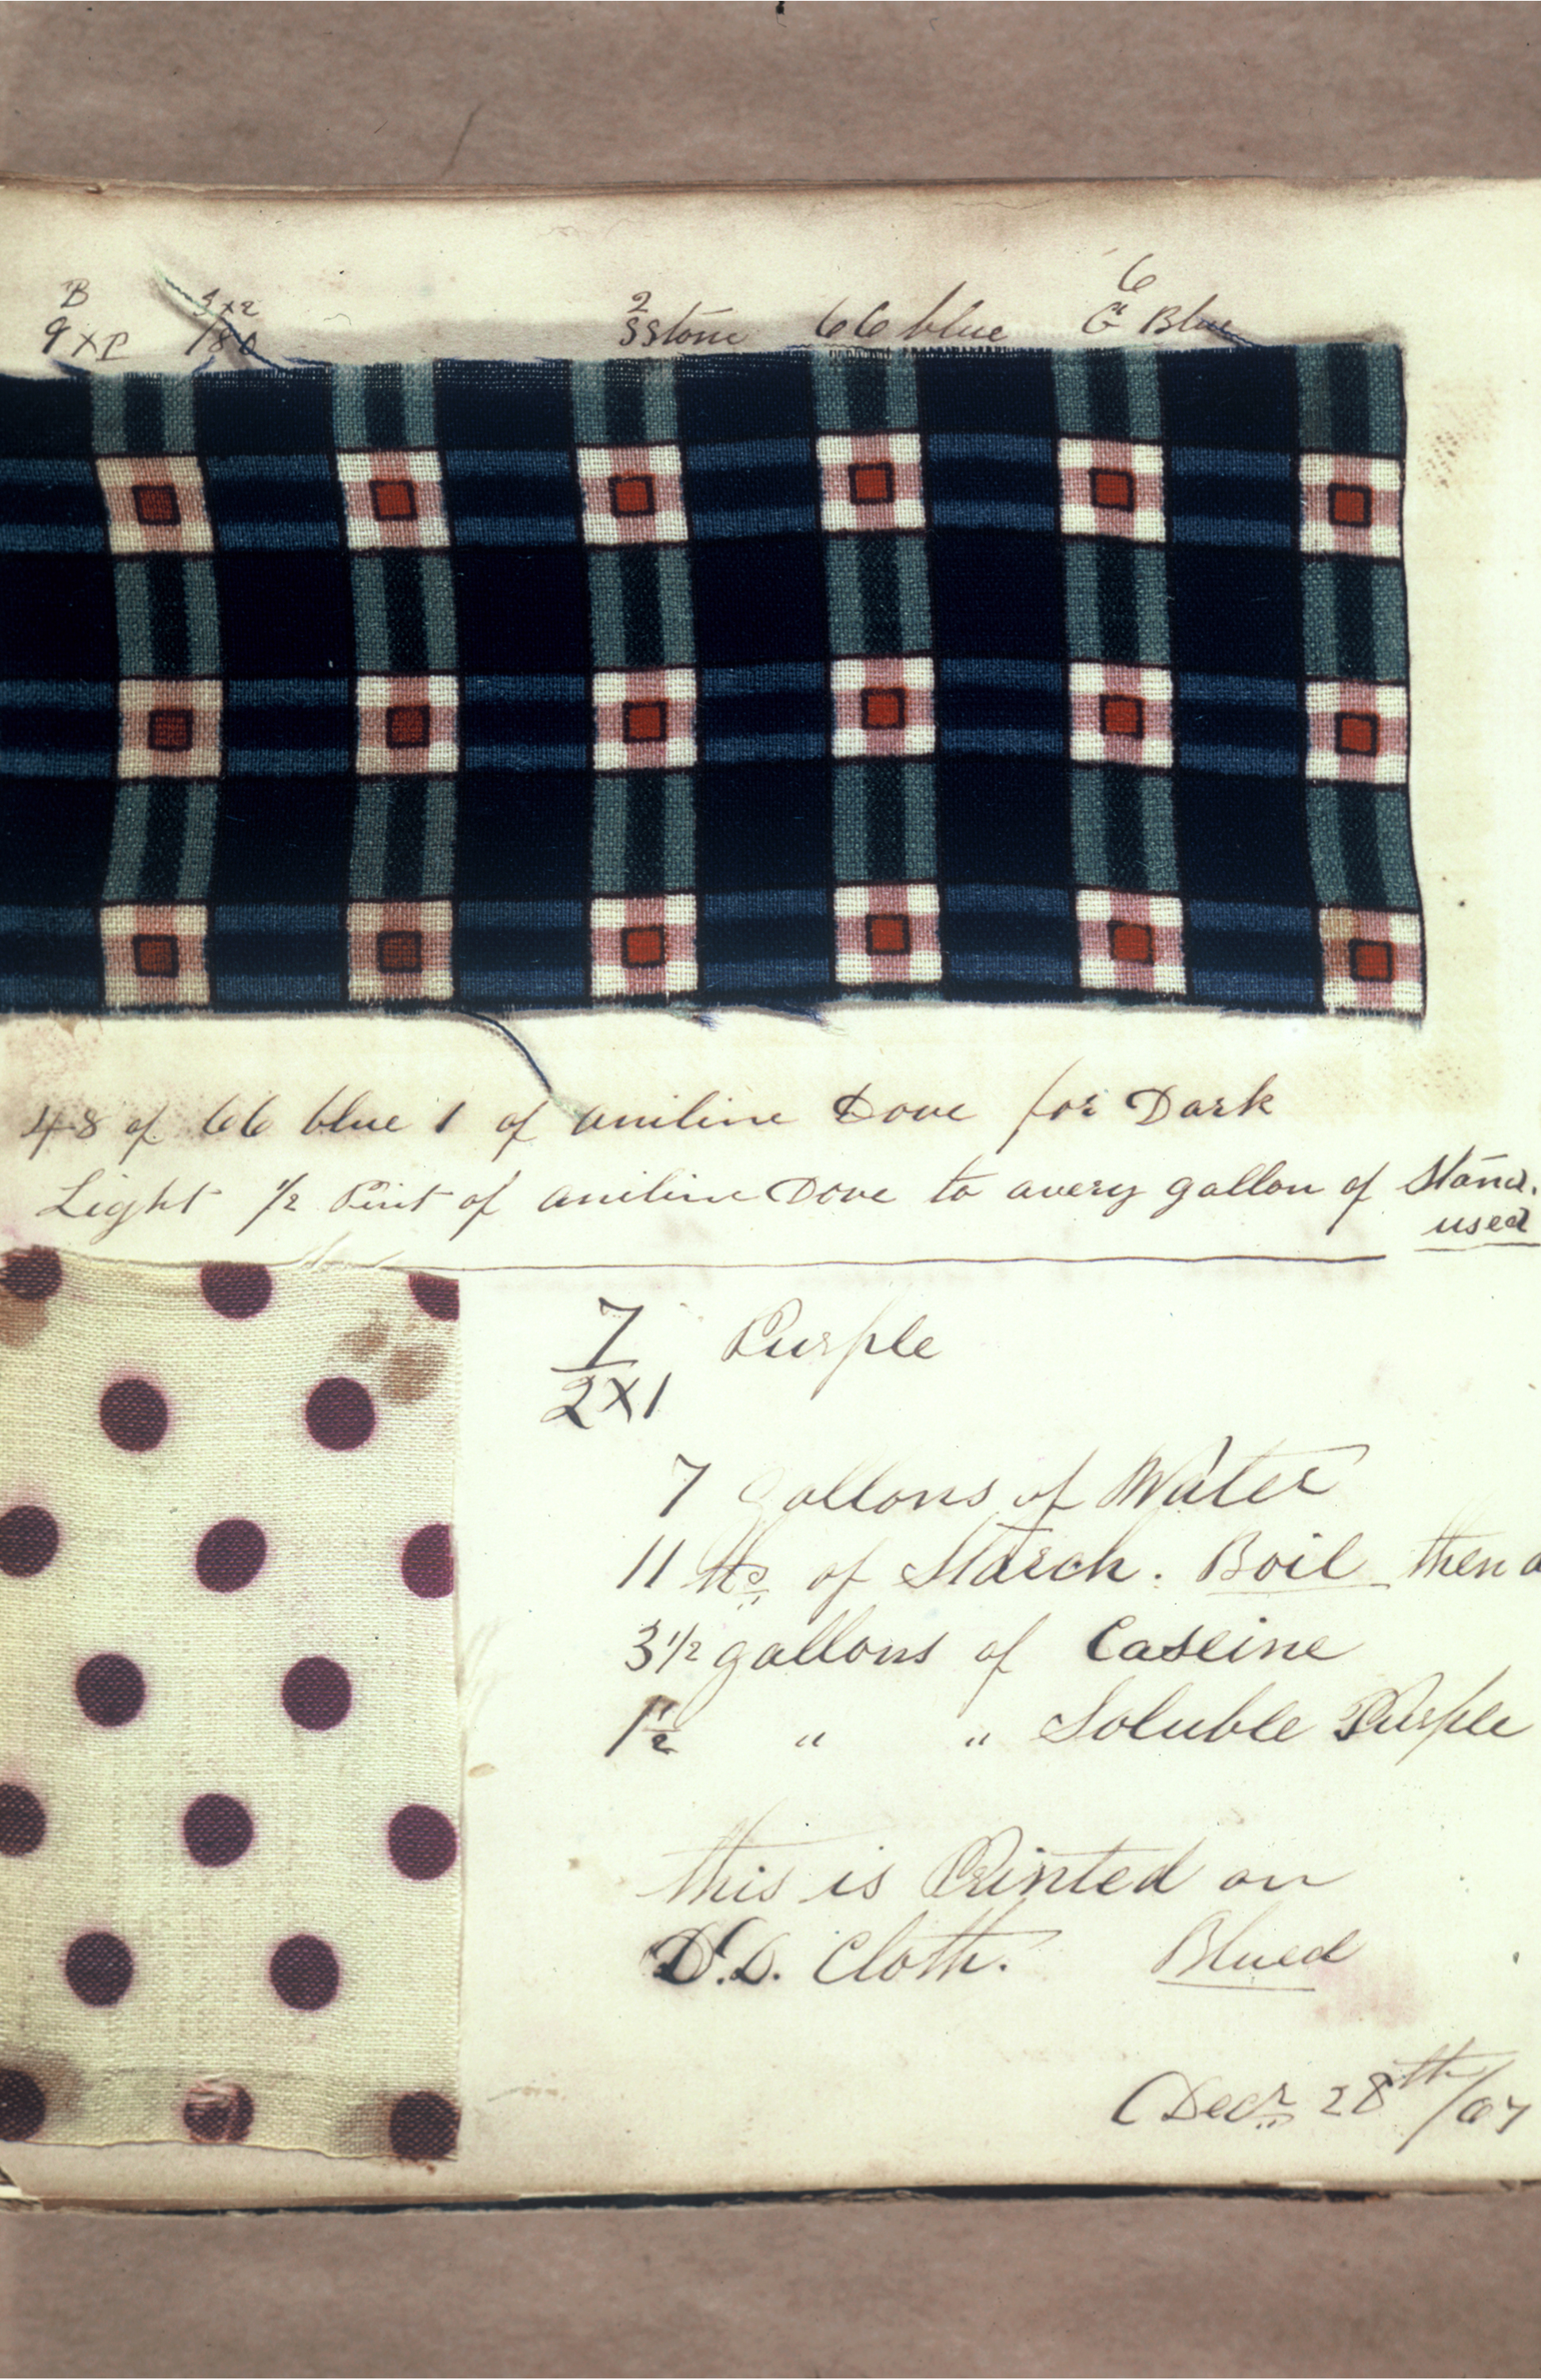 B 3x2 2 6
9XP /80 Sstone 66 blue G Blue
48 of 66 blue 1 of aniline Dove for Dark
Light 1/2 Pint of aniline Dove to avery gallon of Stand.
used
7 Purple
2X1
7 gallons of Water
11 lbs of Starch. Boil then a
3 1/2 gallons of Caseine
1 1/2 " " Soluble Purple
this is Printed on
D.D. Cloth. Blued
Decr 28th/67